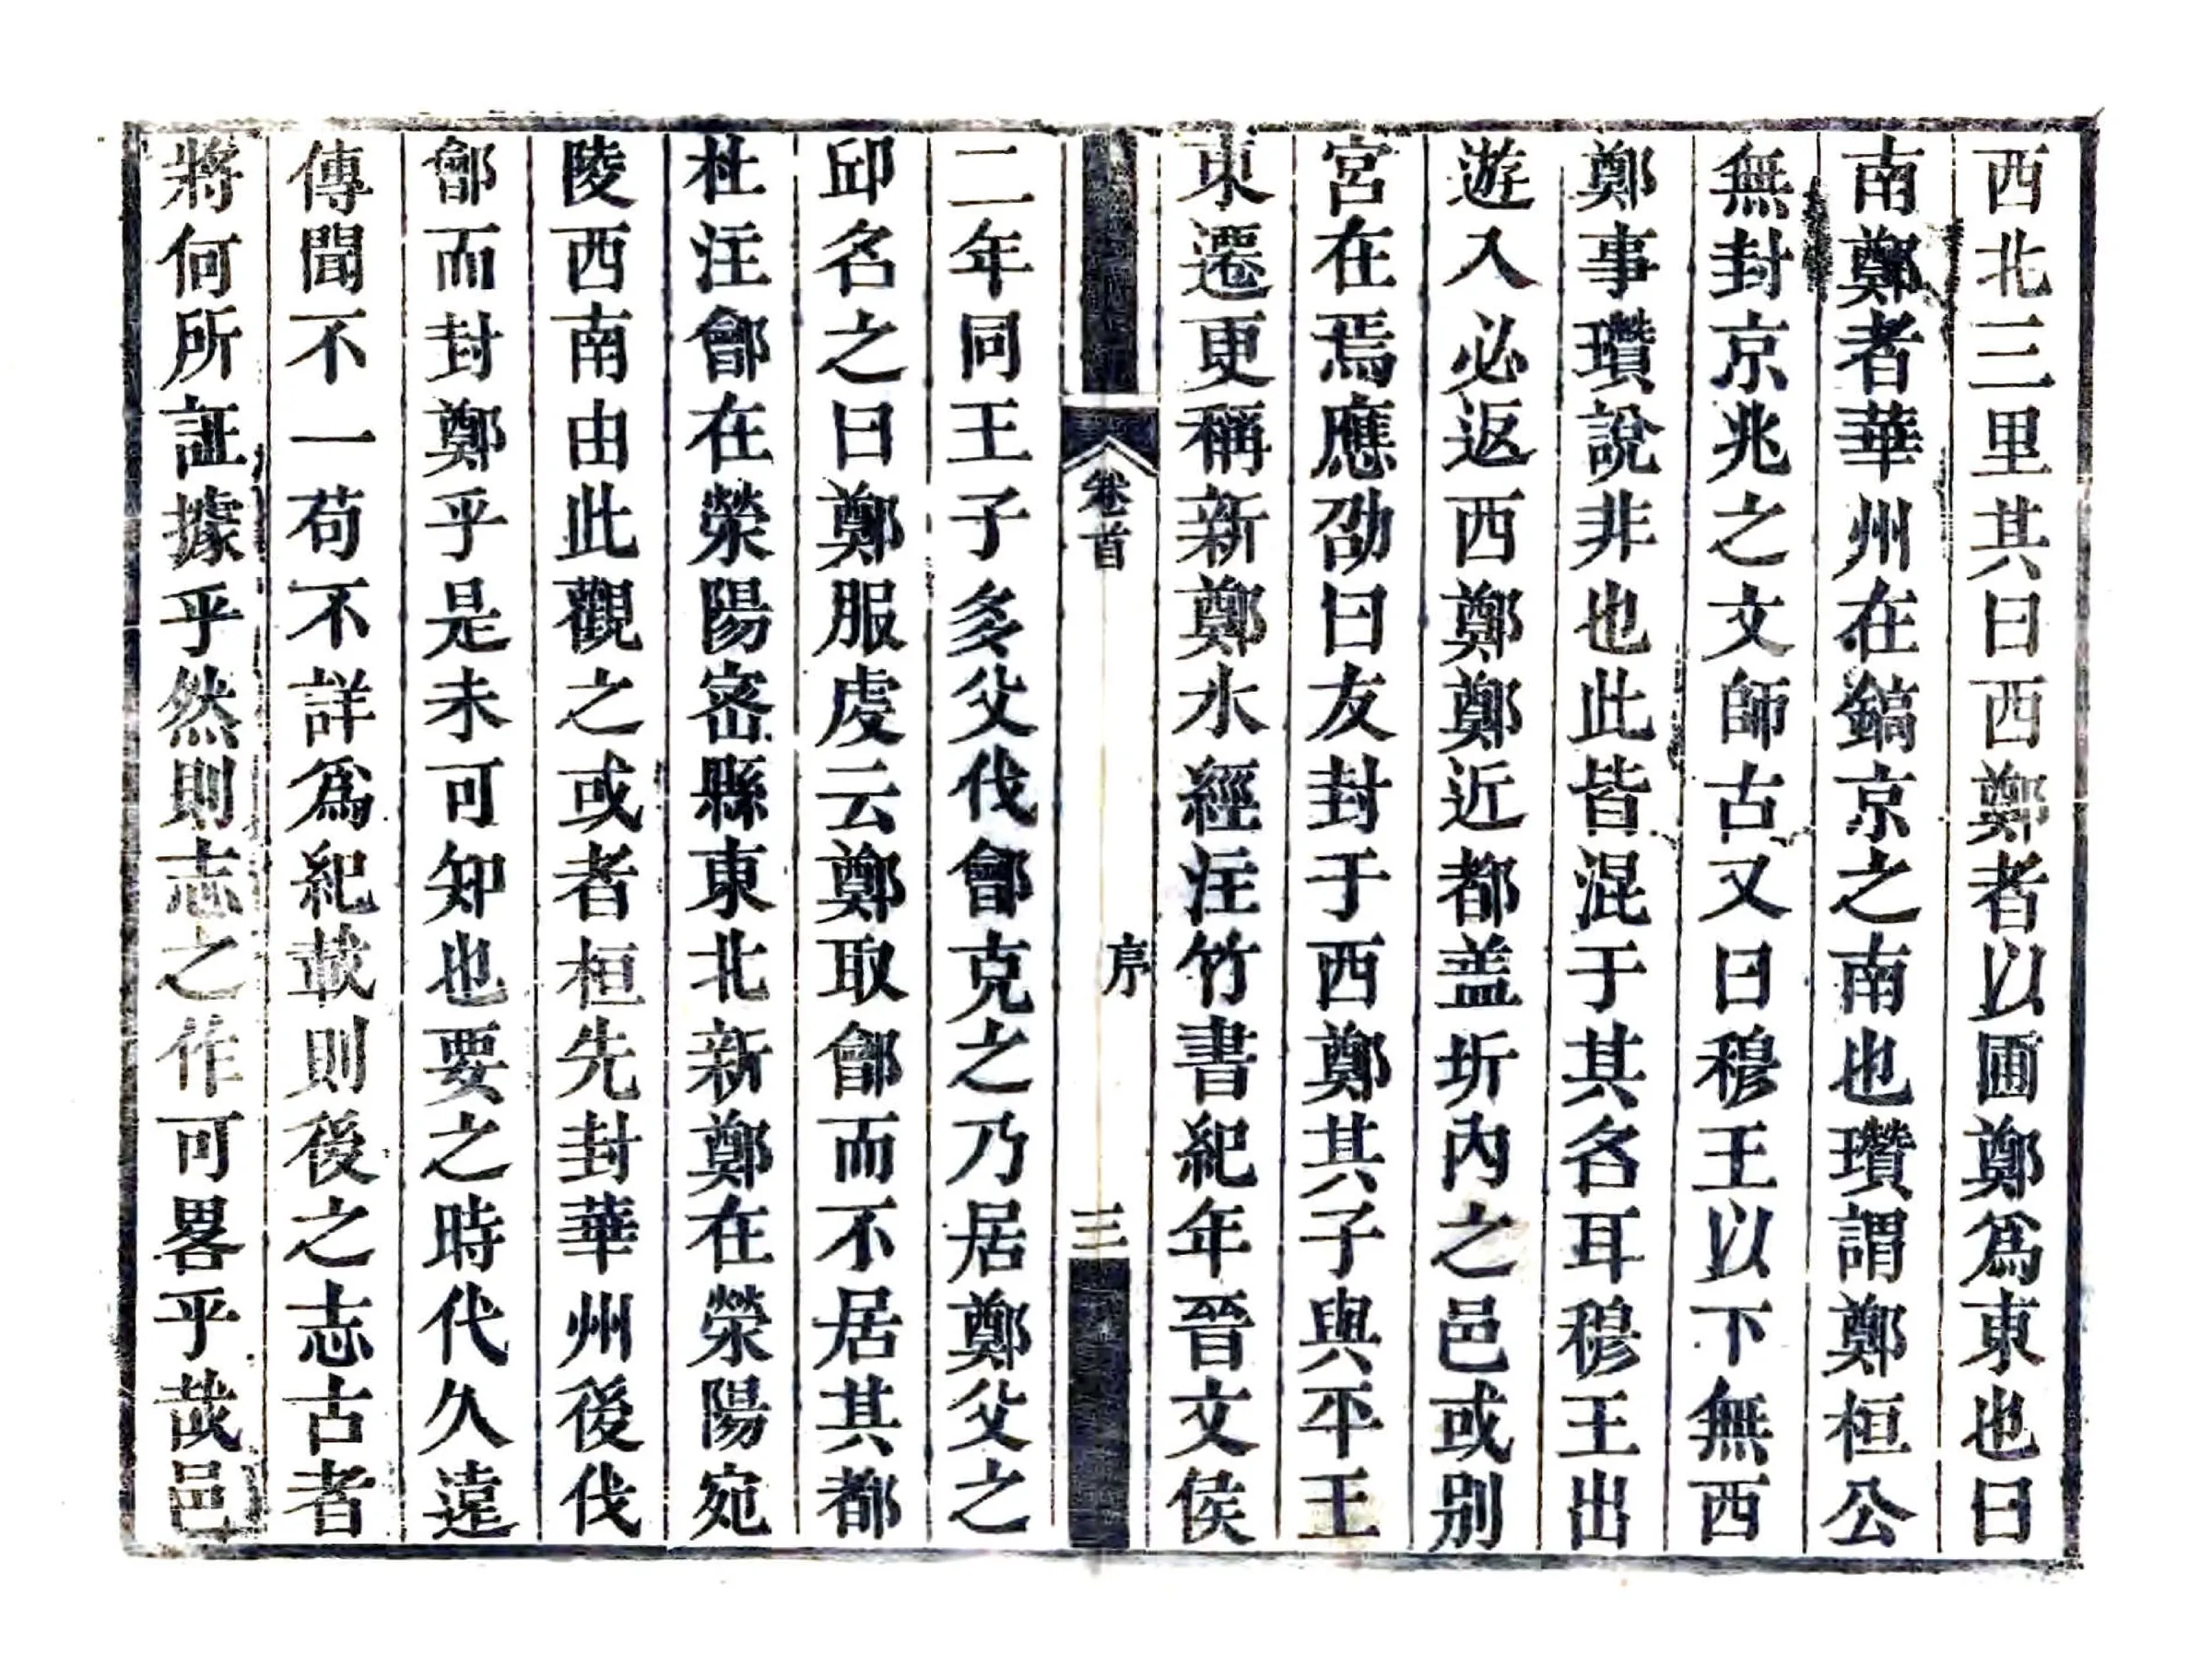 西北三里其曰西鄭者以圃鄭爲東也曰
南鄭者華州在鎬京之南也瓚謂鄭桓公
無封京兆之文師古又曰穆王以下無西
鄭事瓚說非也此皆混于其名耳穆王出
遊入必返西鄭鄭近都盖圻內之邑或别
宮在焉應劭曰友封于西鄭其子與平王
東遷更稱新鄭水經注竹書紀年晉文侯
卷首
序
三
二年同王子多父伐鄶克之乃居鄭父之
邱名之曰鄭服虔云鄭取鄶而不居其都
杜注鄶在滎陽密縣東北新鄭在滎陽宛
陵西南由此觀之或者桓先封華州後伐
鄶而封鄭乎是未可知也要之時代久遠
傳聞不一苟不詳爲紀載則後之志古者
將何所証據乎然則志之作可畧乎哉邑